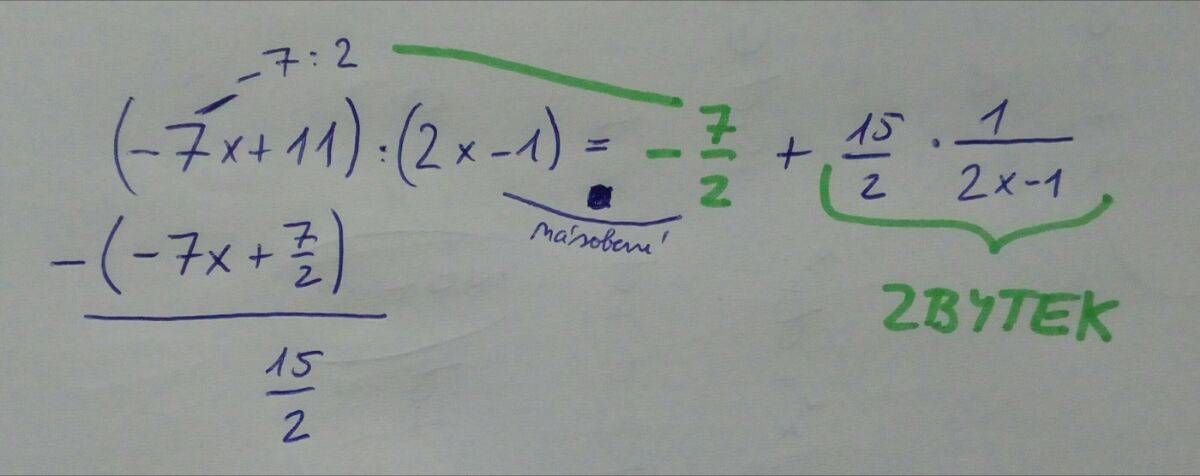 -7:2
(-7x+11):(2x-1) = -7/2 + 15/2 · 1/(2x-1)
násobení
-(-7x+7/2)
ZBYTEK
15/2